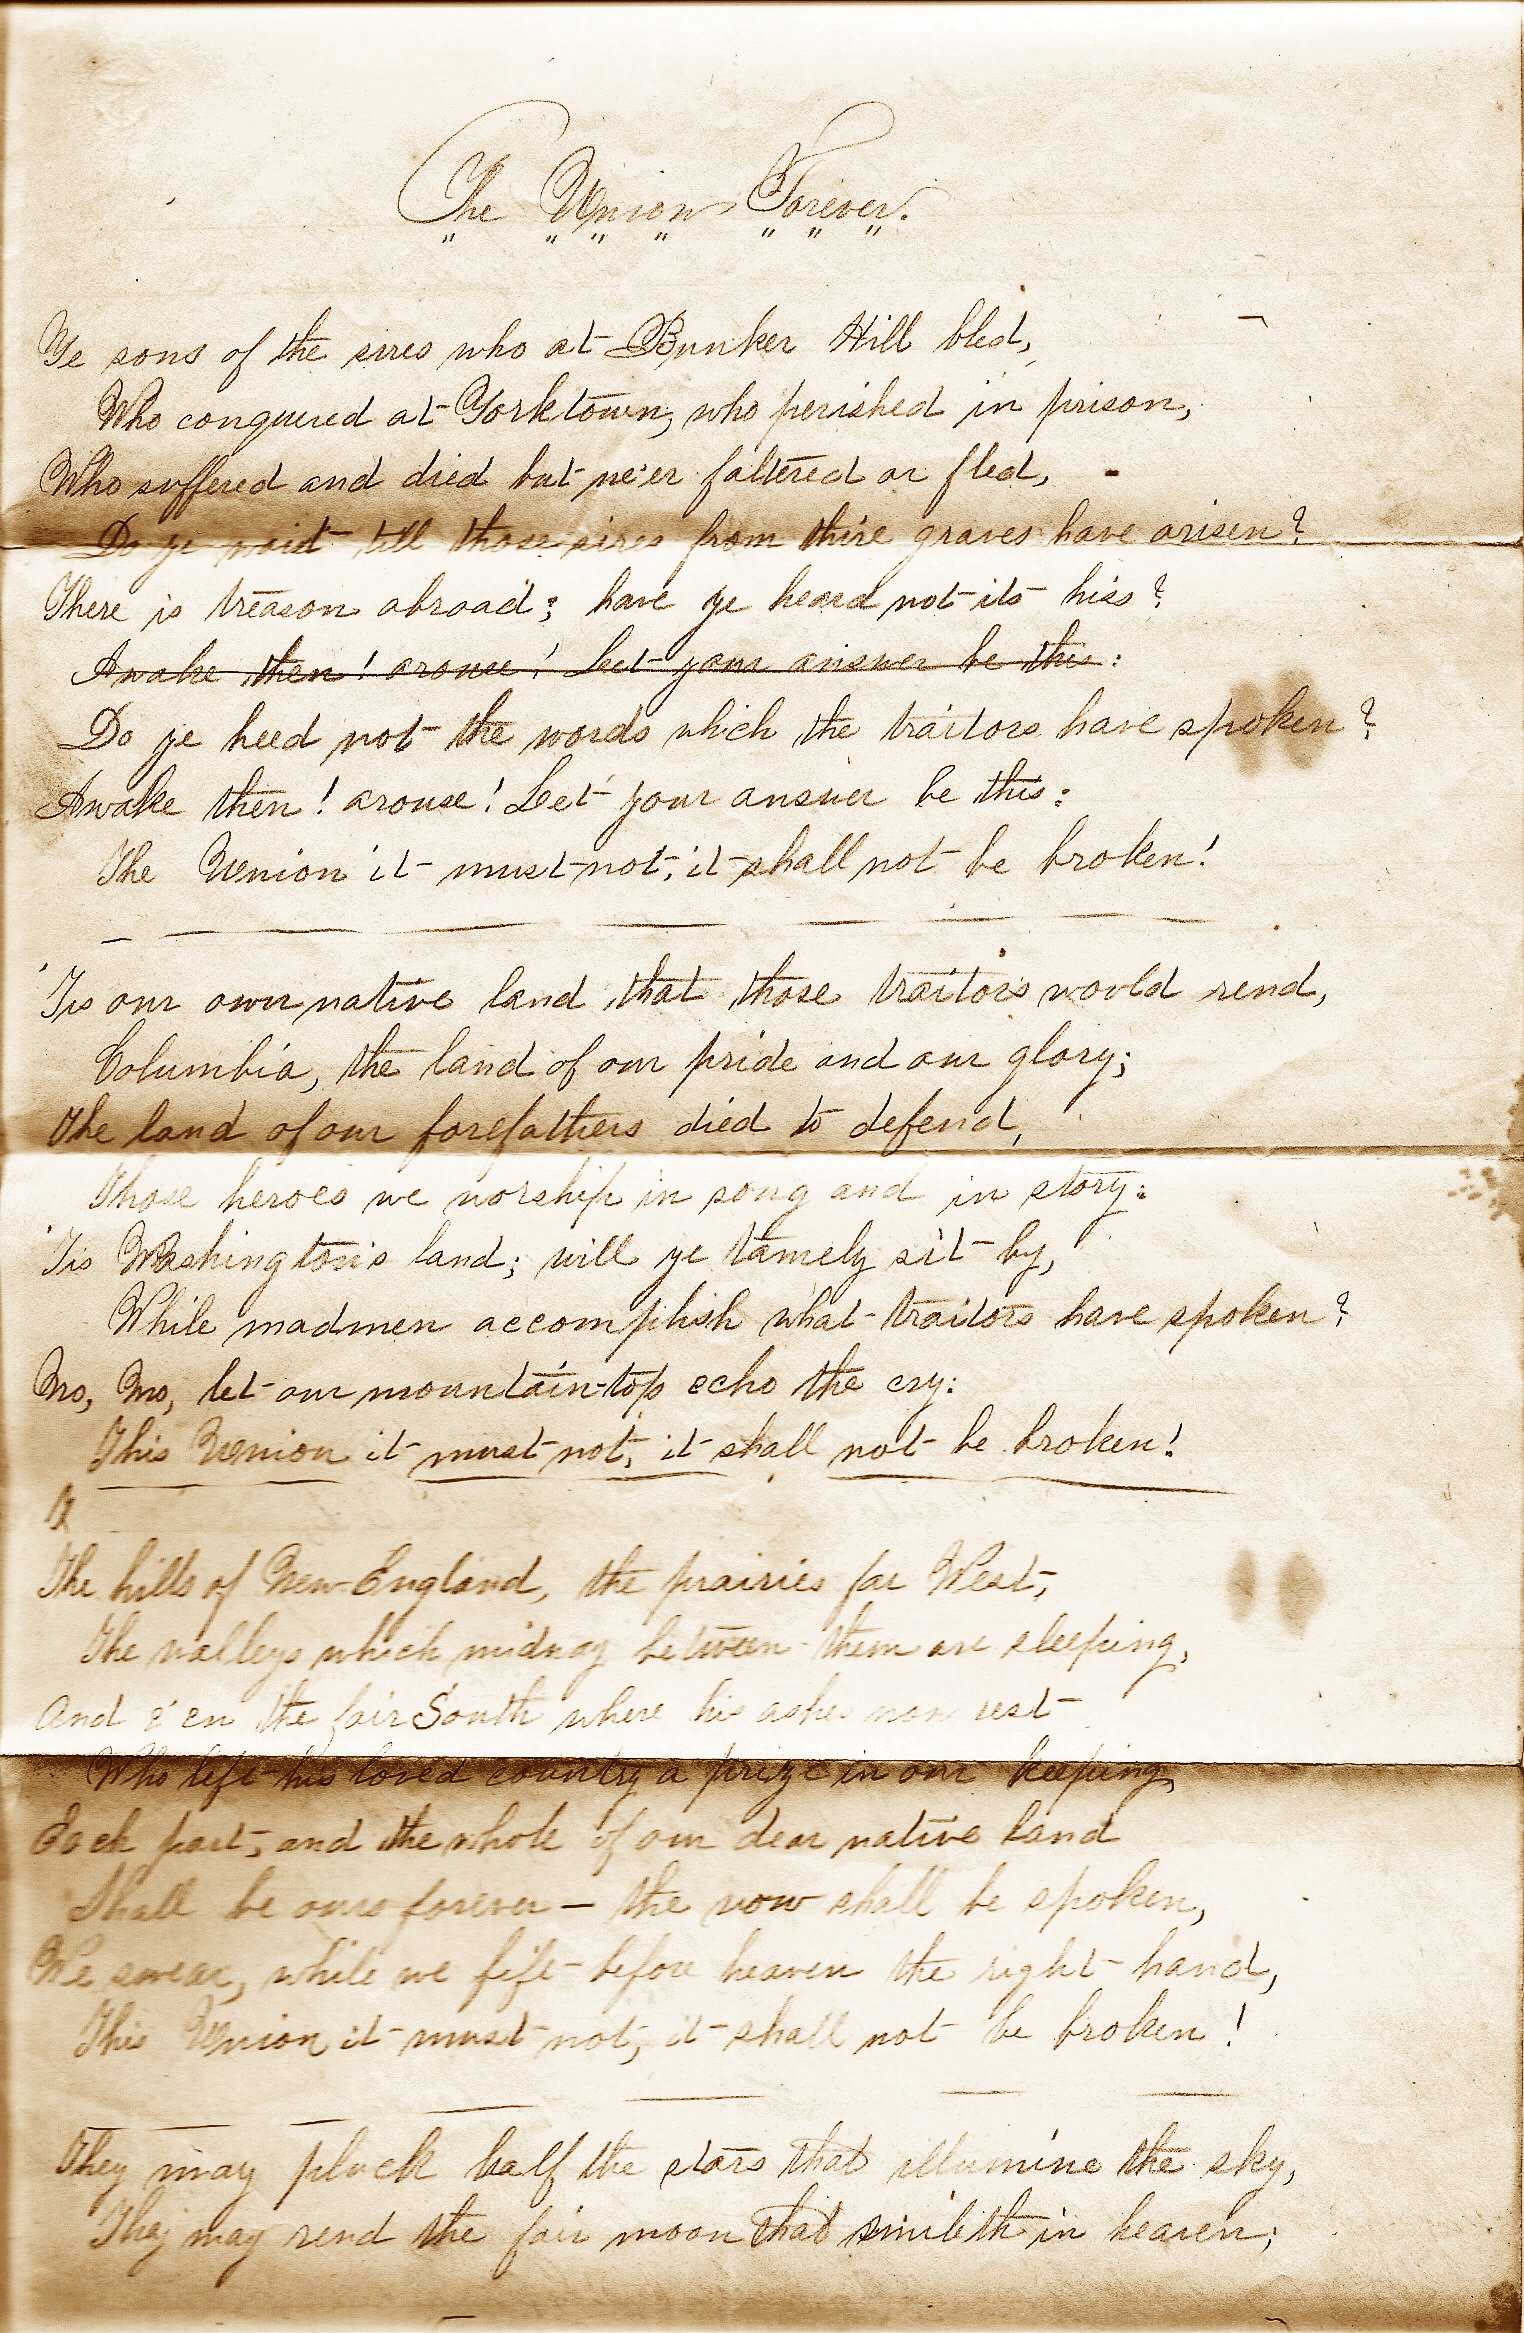 The Union Forever.
Ye sons of the sires who at Bunker Hill bled,
Who conquered at Yorktown, who perished in prison,
Who suffered and died but ne'er faltered or fled,
Do ye wait till those sires from thire graves have arisen?
There is treason abroad; have ye heard not its hiss?
Awake then! arouse! Let your answer be this:
Do ye heed not the words which the traitors have spoken?
Awake then! arouse! Let your answer be this:
The Union it must not, it shall not be broken!
'Tis our own native land that those traitors would rend,
Columbia, the land of our pride and our glory;
The land of our forefathers died to defend,
Those heroes we worship in song and in story:
'Tis Washington's land; will ye tamely sit by,
While madmen accomplish what traitors have spoken?
No, No, let our mountain-top echo the cry:
This Union it must not, it shall not be broken!
The hills of New England, the prairies far West,
The valleys which midway between them are sleeping,
And e'en the fair South where his ashes now rest
Who left his loved country a prize in our keeping,
Each part, and the whole of our dear native land
Shall be ours forever — the vow shall be spoken,
We swear, while we lift before heaven the right hand,
This Union it must not, it shall not be broken!
They may pluck half the stars that illumine the sky,
They may rend the fair moon that smileth in heaven;